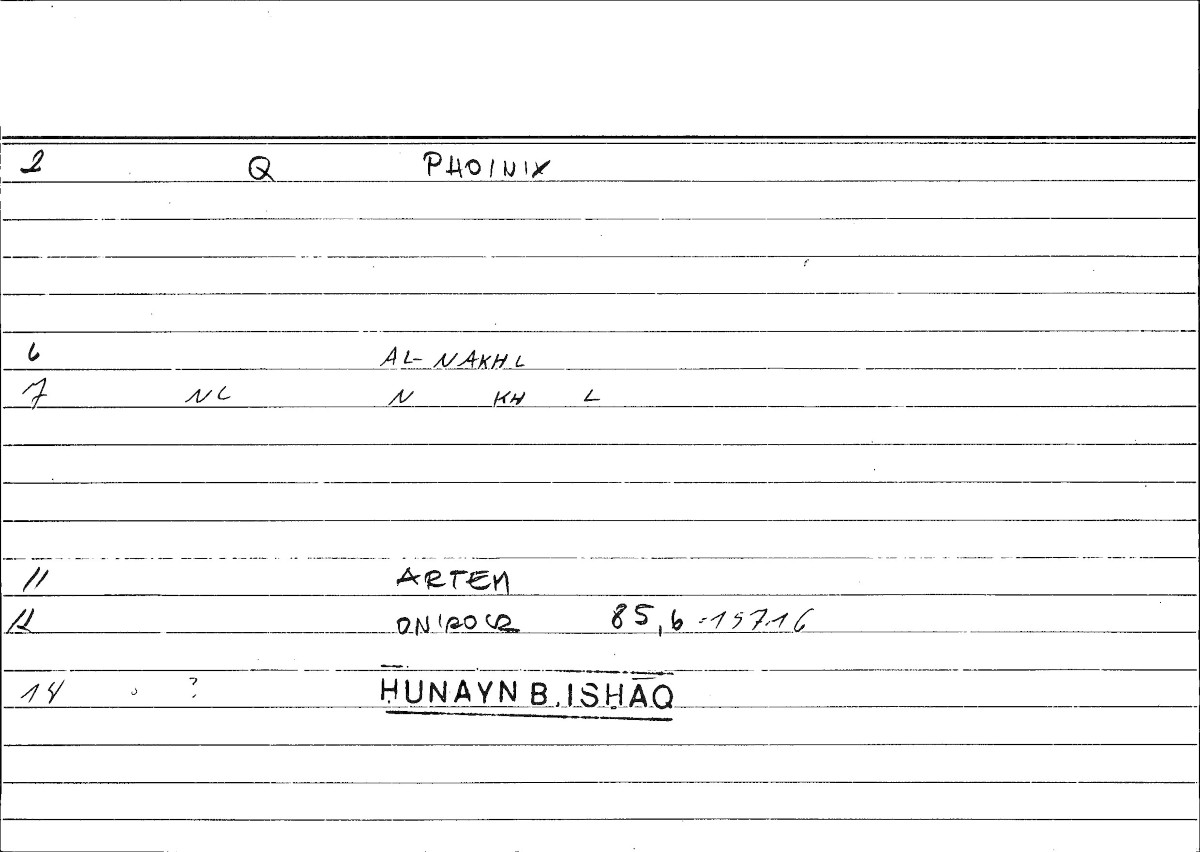 2 Q PHOINIX
6 AL-NAKHL
7 NL N KH L
11 ARTEM
12 ONIROCR 85,6 -157.16
14 ? ḤUNAYN B. ISḤĀQ